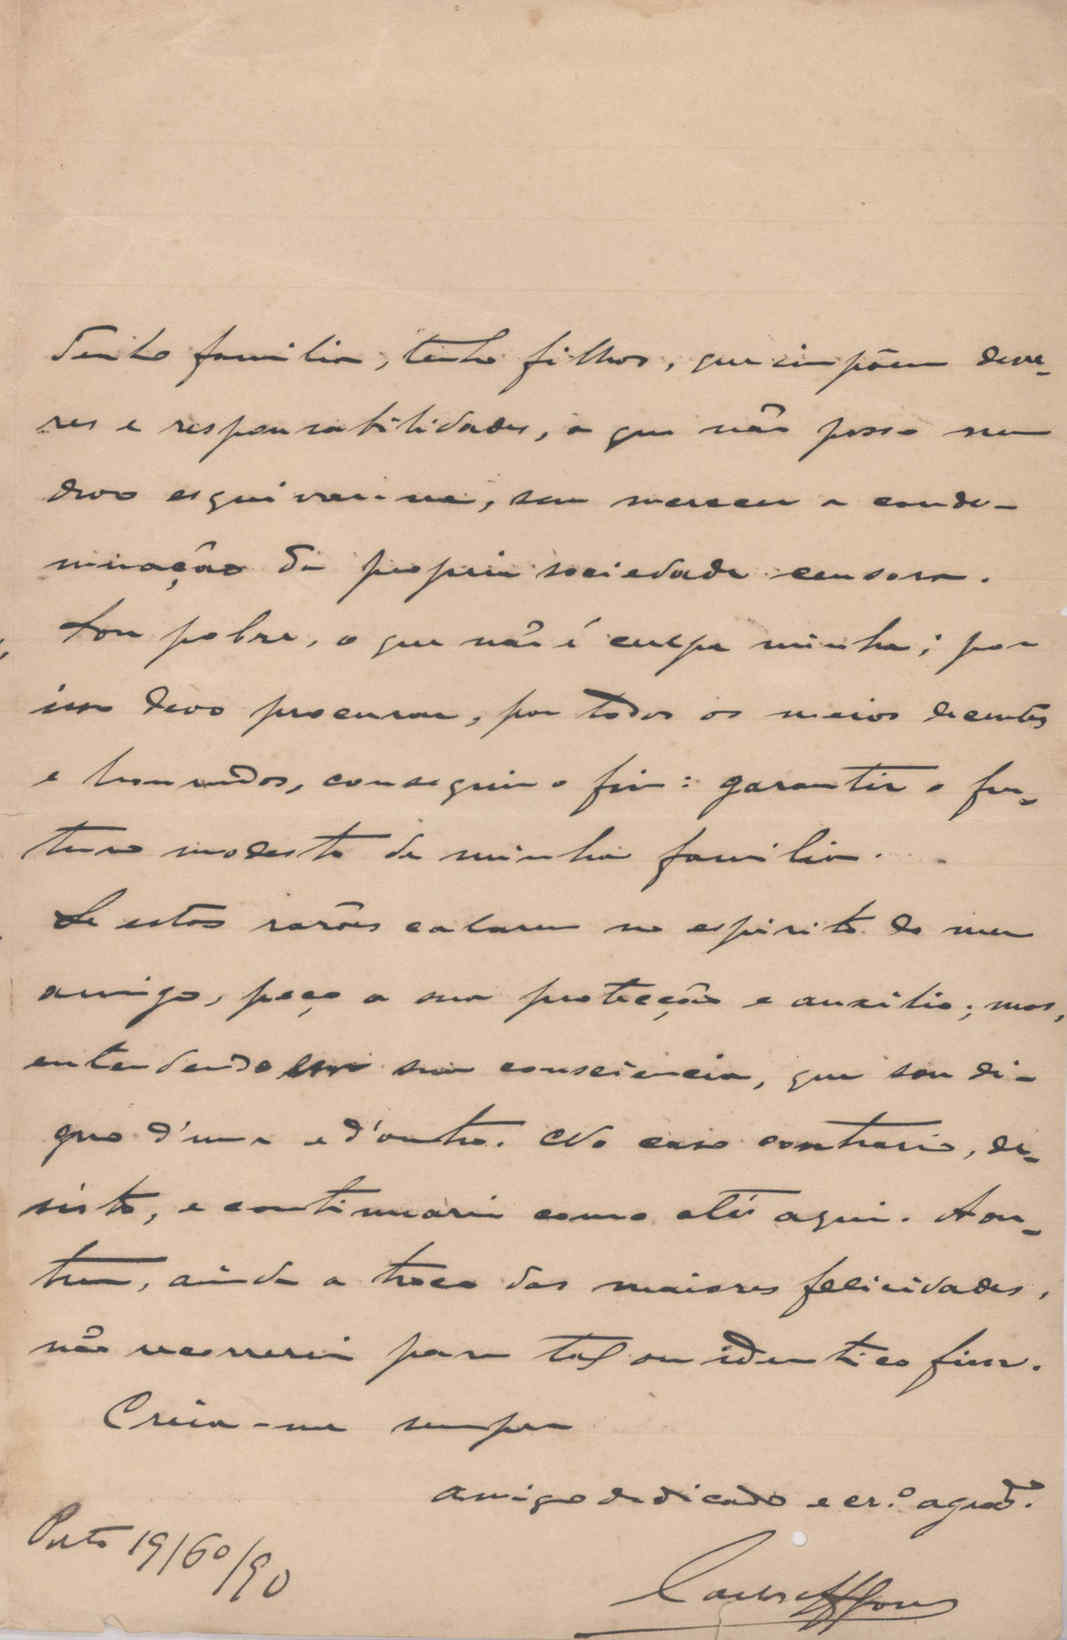 Tenho familia, tenho filhos, que impõem deve-
res e responsabilidades, a que não posso nem
devo esquivar-me, sem merecer a conde-
minação da propria sociedade censora.
Sou pobre, o que não é culpa minha; por
isso devo procurar, por todos os meios decentes
e honrados, conseguir o fim: garantir o fu-
turo modesto da minha familia.
Se estas rasões calarem no espirito do meu
amigo, peço a sua protecção e auxilio; mas,
entendendo em sua consciencia, que sou di-
gno d'uma e d'outro. No caso contrario, de-
sisto, e continuarei como até aqui. A ou-
trem, ainda a troco das maiores felicidades,
não recorrerei para tal ou identico fim.
Creia-me sempre
amigo dedicado e cr.º agrad.º
Porto 19/6º/90
Carlos Affonso